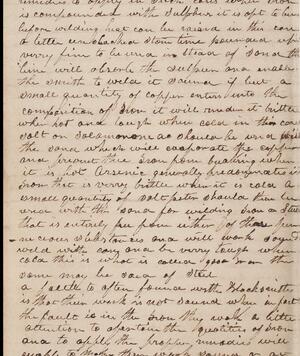 remedies to apply in such cases when iron
is compounded with Sulpher it is apt to be
when welding heat can be raised in this case
a little unslacked stone lime pounded up
very fine to be used in stead of sand the
lime will absorb the Sulpher and enable
the smith to weld a sound if but a
small quantity of copper enters into the
composition of Iron it will render it brittle
when hot and tough when cold in this case
salt or Salamoneac should be used with
the sand which will evaporate the copper
and prevent the iron from breaking when
it is hot Arsenic generally predominates in
iron that is verry brittle when it is cold a
small quantity of Saltpeter should then be
used with the sand for welding iron or Steel
that is entirely free from either of these per
nicious Substances and will work sound
weld with any and be verry tough when
cold this is what is called good iron the
same may be said of Steel
a fault to often found with Blacksmiths
is that their work is not sound when in fact
the fault is in the iron they work a little
attention to the qualities of Iron
and to apply the propper remidies will
enable to their work sound